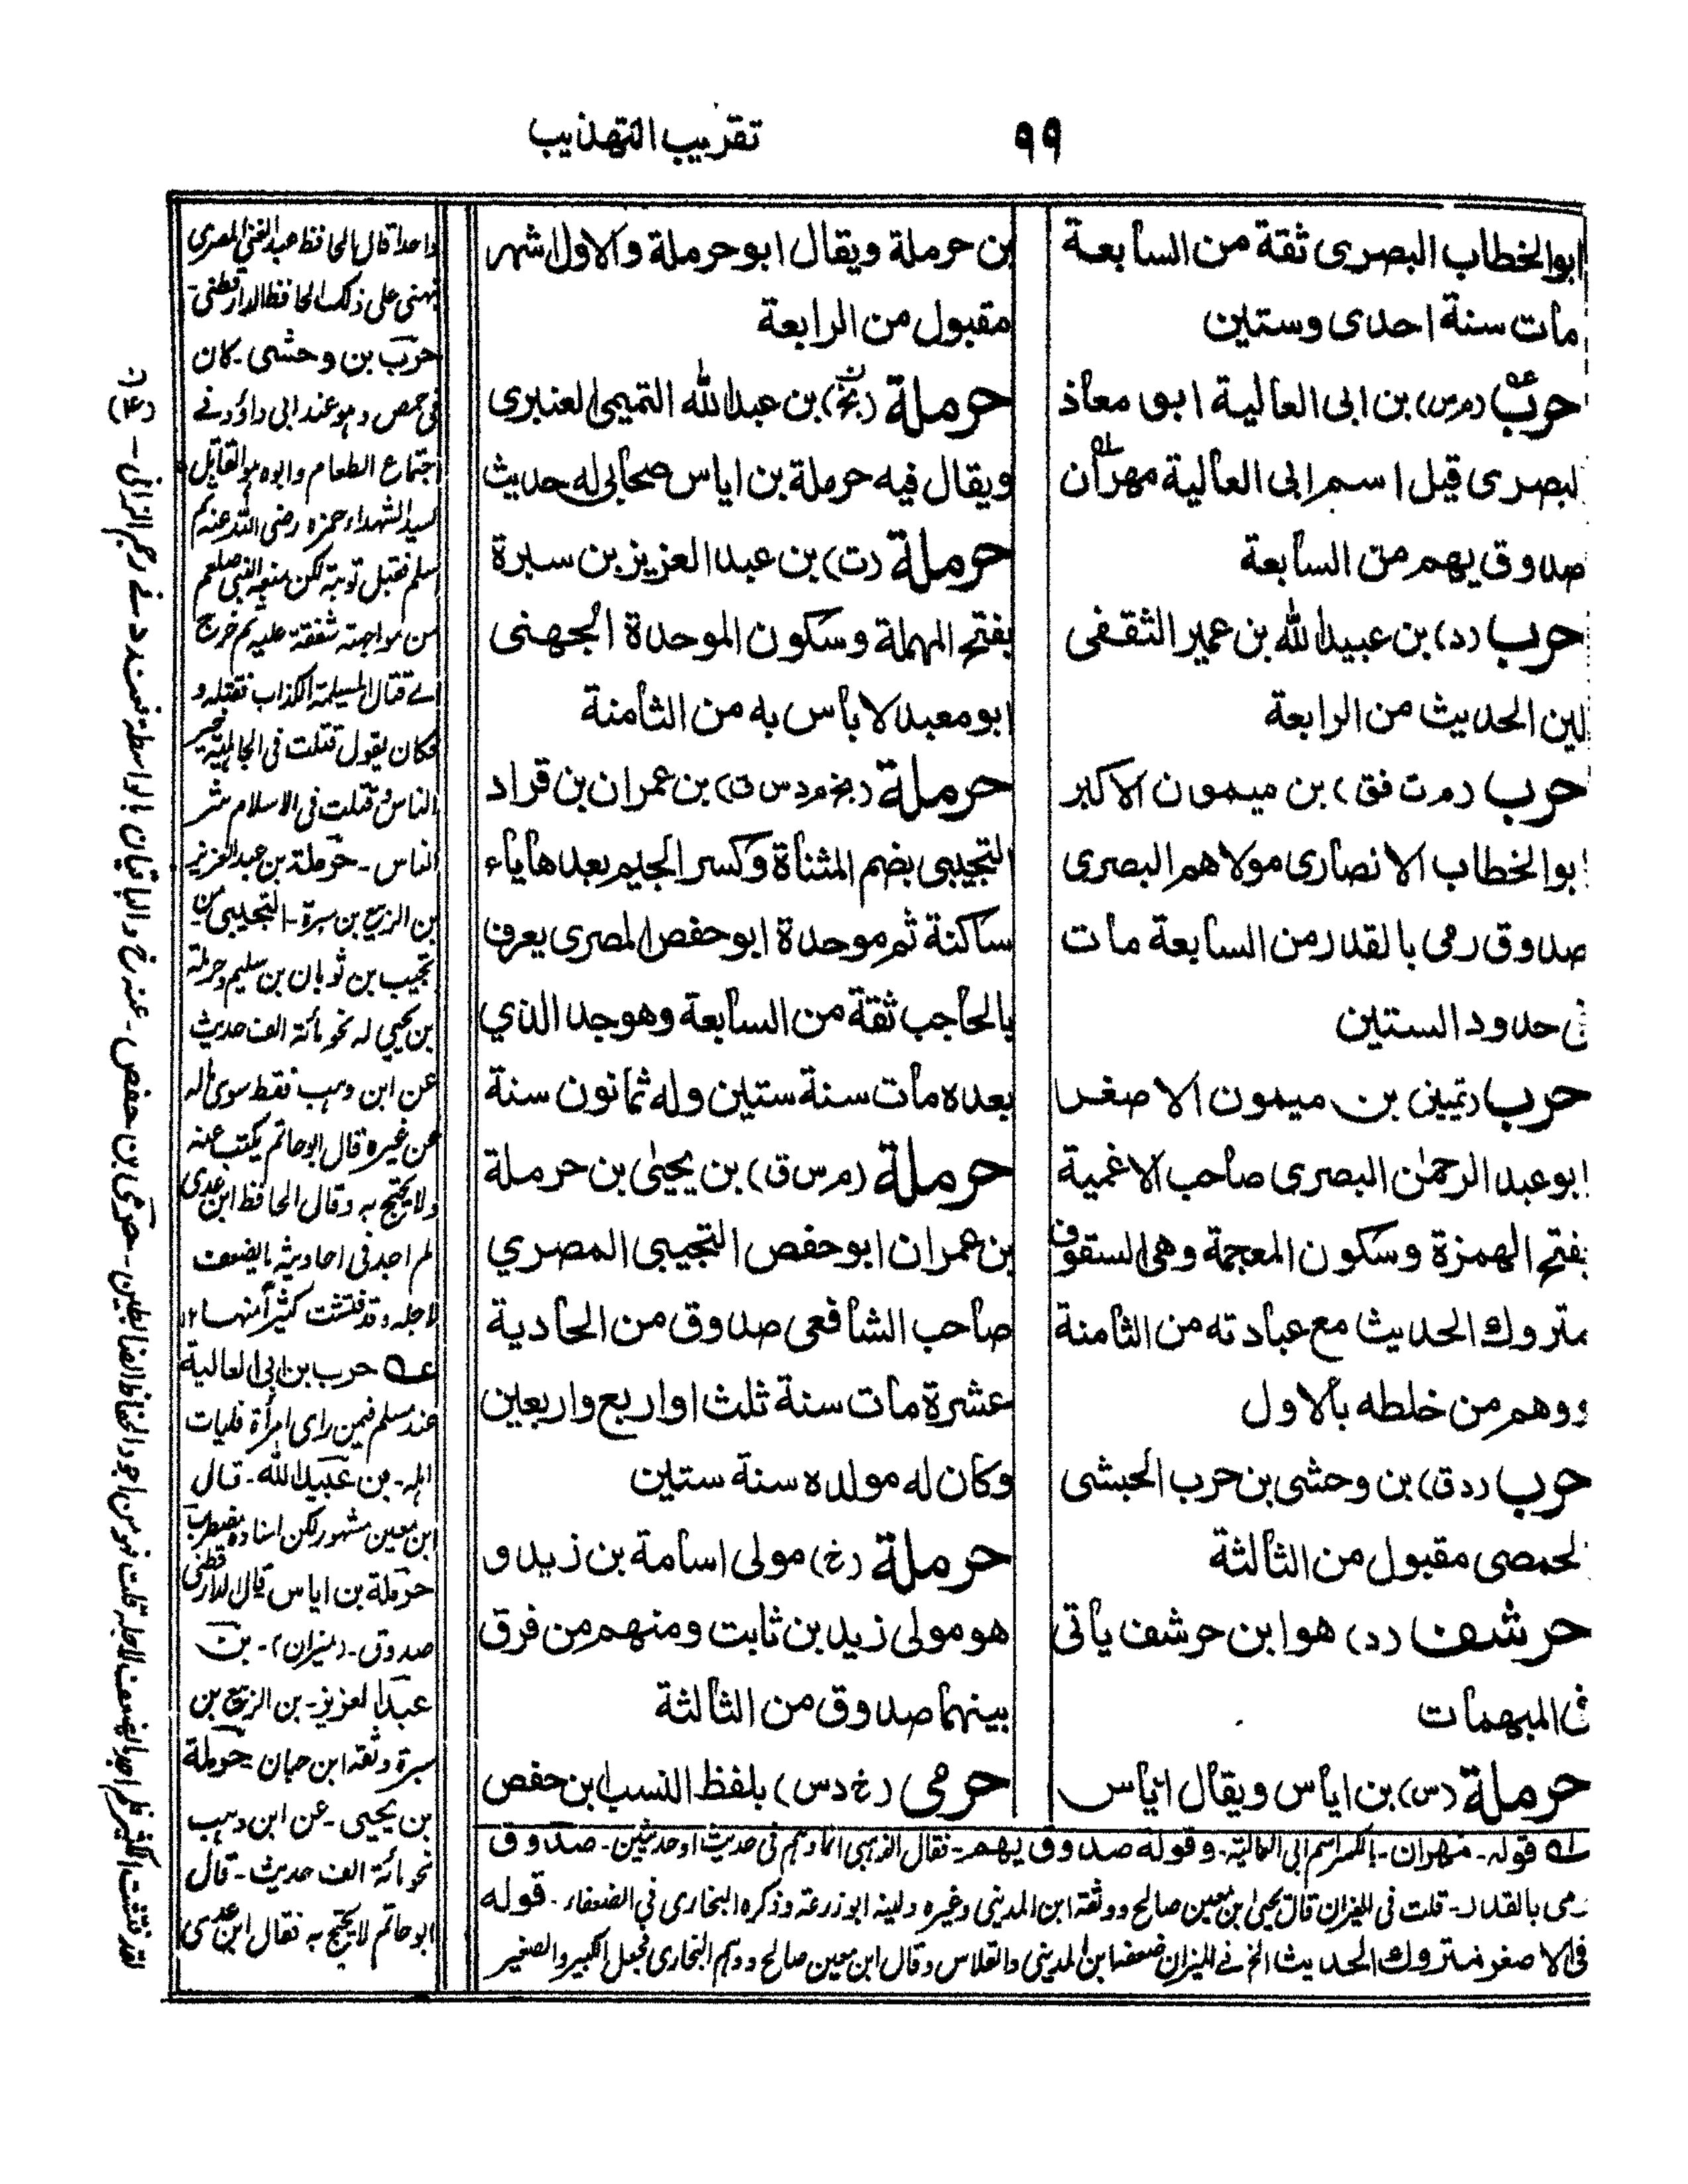 ٩٩
تقريب التهذيب
ابوالخطاب البصرى ثقة من السابعة
مات سنة احدى وستين
حرب (م س) بن ابى العالية ابو معاذ
البصرى قيل اسم ابى العالية مهران
صدوق يهم من السابعة
حرب (د) بن عبيدالله بن عمير الثقفى
لين الحديث من الرابعة
حرب (م ت فق) بن ميمون الاكبر
ابوالخطاب الانصارى مولاهم البصرى
صدوق رمى بالقدر من السابعة مات
فى حدود الستين
حرب (تمييز) بن ميمون الاصغر
ابوعبد الرحمٰن البصرى صاحب الاغمية
بفتح الهمزة وسكون المعجمة وهى السقوف
متروك الحديث مع عبادته من الثامنة
ووهم من خلطه بالاول
حرب (د ق) بن وحشى بن حرب الحبشى
الحمصى مقبول من الثالثة
حرشف (د) هو ابن حرشف يأتى
فى المبهمات
حرملة (س) بن اياس ويقال اياس
بن حرملة ويقال ابو حرملة والاول اشهر
مقبول من الرابعة
حرملة (بخ) بن عبدالله التميمى العنبرى
ويقال فيه حرملة بن اياس صحابى له حديث
حرملة (ت) بن عبدالعزيز بن سبرة
بفتح المهملة وسكون الموحدة الجهنى
ابو معبد لا بأس به من الثامنة
حرملة (بخ م د س ق) بن عمران بن قراد
التجيبى بضم المثناة وكسر الجيم بعدها ياء
ساكنة ثم موحدة ابو حفص المصرى يعرف
بالحاجب ثقة من السابعة وهو جد الذي
بعده مات سنة ستين وله ثمانون سنة
حرملة (م س ق) بن يحيىٰ بن حرملة
بن عمران ابو حفص التجيبى المصري
صاحب الشافعى صدوق من الحادية
عشرة مات سنة ثلث او اربع واربعين
وكان له مولده سنة ستين
حرملة (خ) مولى اسامة بن زيد و
هو مولى زيد بن ثابت ومنهم من فرق
بينهما صدوق من الثالثة
حرمى (خ د س) بلفظ النسب ابن حفص
قوله۔ مهران۔ بالكسر اسم ابى العالية۔ وقوله صدوق يهم۔ فقال الذهبى انما وهم فى حديث او حديثين۔ صدوق
رمى بالقدر۔ قلت فى الميزان قال يحيىٰ بن معين صالح ووثقه ابن المدينى وغيره ولينه ابوزرعة وذكره البخارى فى الضعفاء۔ قوله
فى الاصغر متروك الحديث الخ فى الميزان ضعفه ابن المدينى والفلاس وقال ابن معين صالح ووهم البخارى فجعل الكبير والصغير
واحدا قال الحافظ عبدالغنى المصرى
نبهنى على ذلك الحافظ الدارقطنى۔
حرب بن وحشى۔ كان
فى حمص وهو عند ابى داؤد فى
اجتماع الطعام وابوه هو القاتل
لسيد الشهداء حمزه رضى الله عنه ثم
اسلم فقبل توبته لكن منعه النبى صلعم
من مواجهته شفقة عليه ثم خرج
الى قتال المسيلمة الكذاب فقتله و
فكان يقول قتلت فى الجاهلية خير
الناس وقتلت فى الاسلام شر
الناس۔ حرملة بن عبدالعزيز
بن الربيع بن سبرة۔ التجيبى من
تجيب بن ثوبان بن سليم وحرملة
بن يحيى له نحو مائة الف حديث
عن ابن وهب فقط سوى ماله
عن غيره قال ابوحاتم يكتب عنه
ولا يحتج به وقال الحافظ ابن عدى
لم اجد فى احاديثه ما يضعف
لاجله وقد فتشت كثيراً منها ١٢
حرب بن ابى العالية
عند مسلم فيمن راى امرأة فليات
اهله۔ بن عبيدالله۔ قال
ابن معين مشهور لكن اسناده مضطرب
حرملة بن اياس قال الدارقطنى
صدوق۔ (ميزان)۔ بن
عبدالعزيز۔ بن الربيع بن
سبرة وثقه ابن حبان حرملة
بن يحيى۔ عن ابن وهب
نحو مائة الف حديث۔ قال
ابوحاتم لا يحتج به فقال ابن عدى
لقد فتشت الكثير فلم اجد ما يضعف لاجله قلت فهو من اجود الحفاظ الضابطين۔ حرمى بن حفص۔ عنه (خ) والباقيان بالواسطة